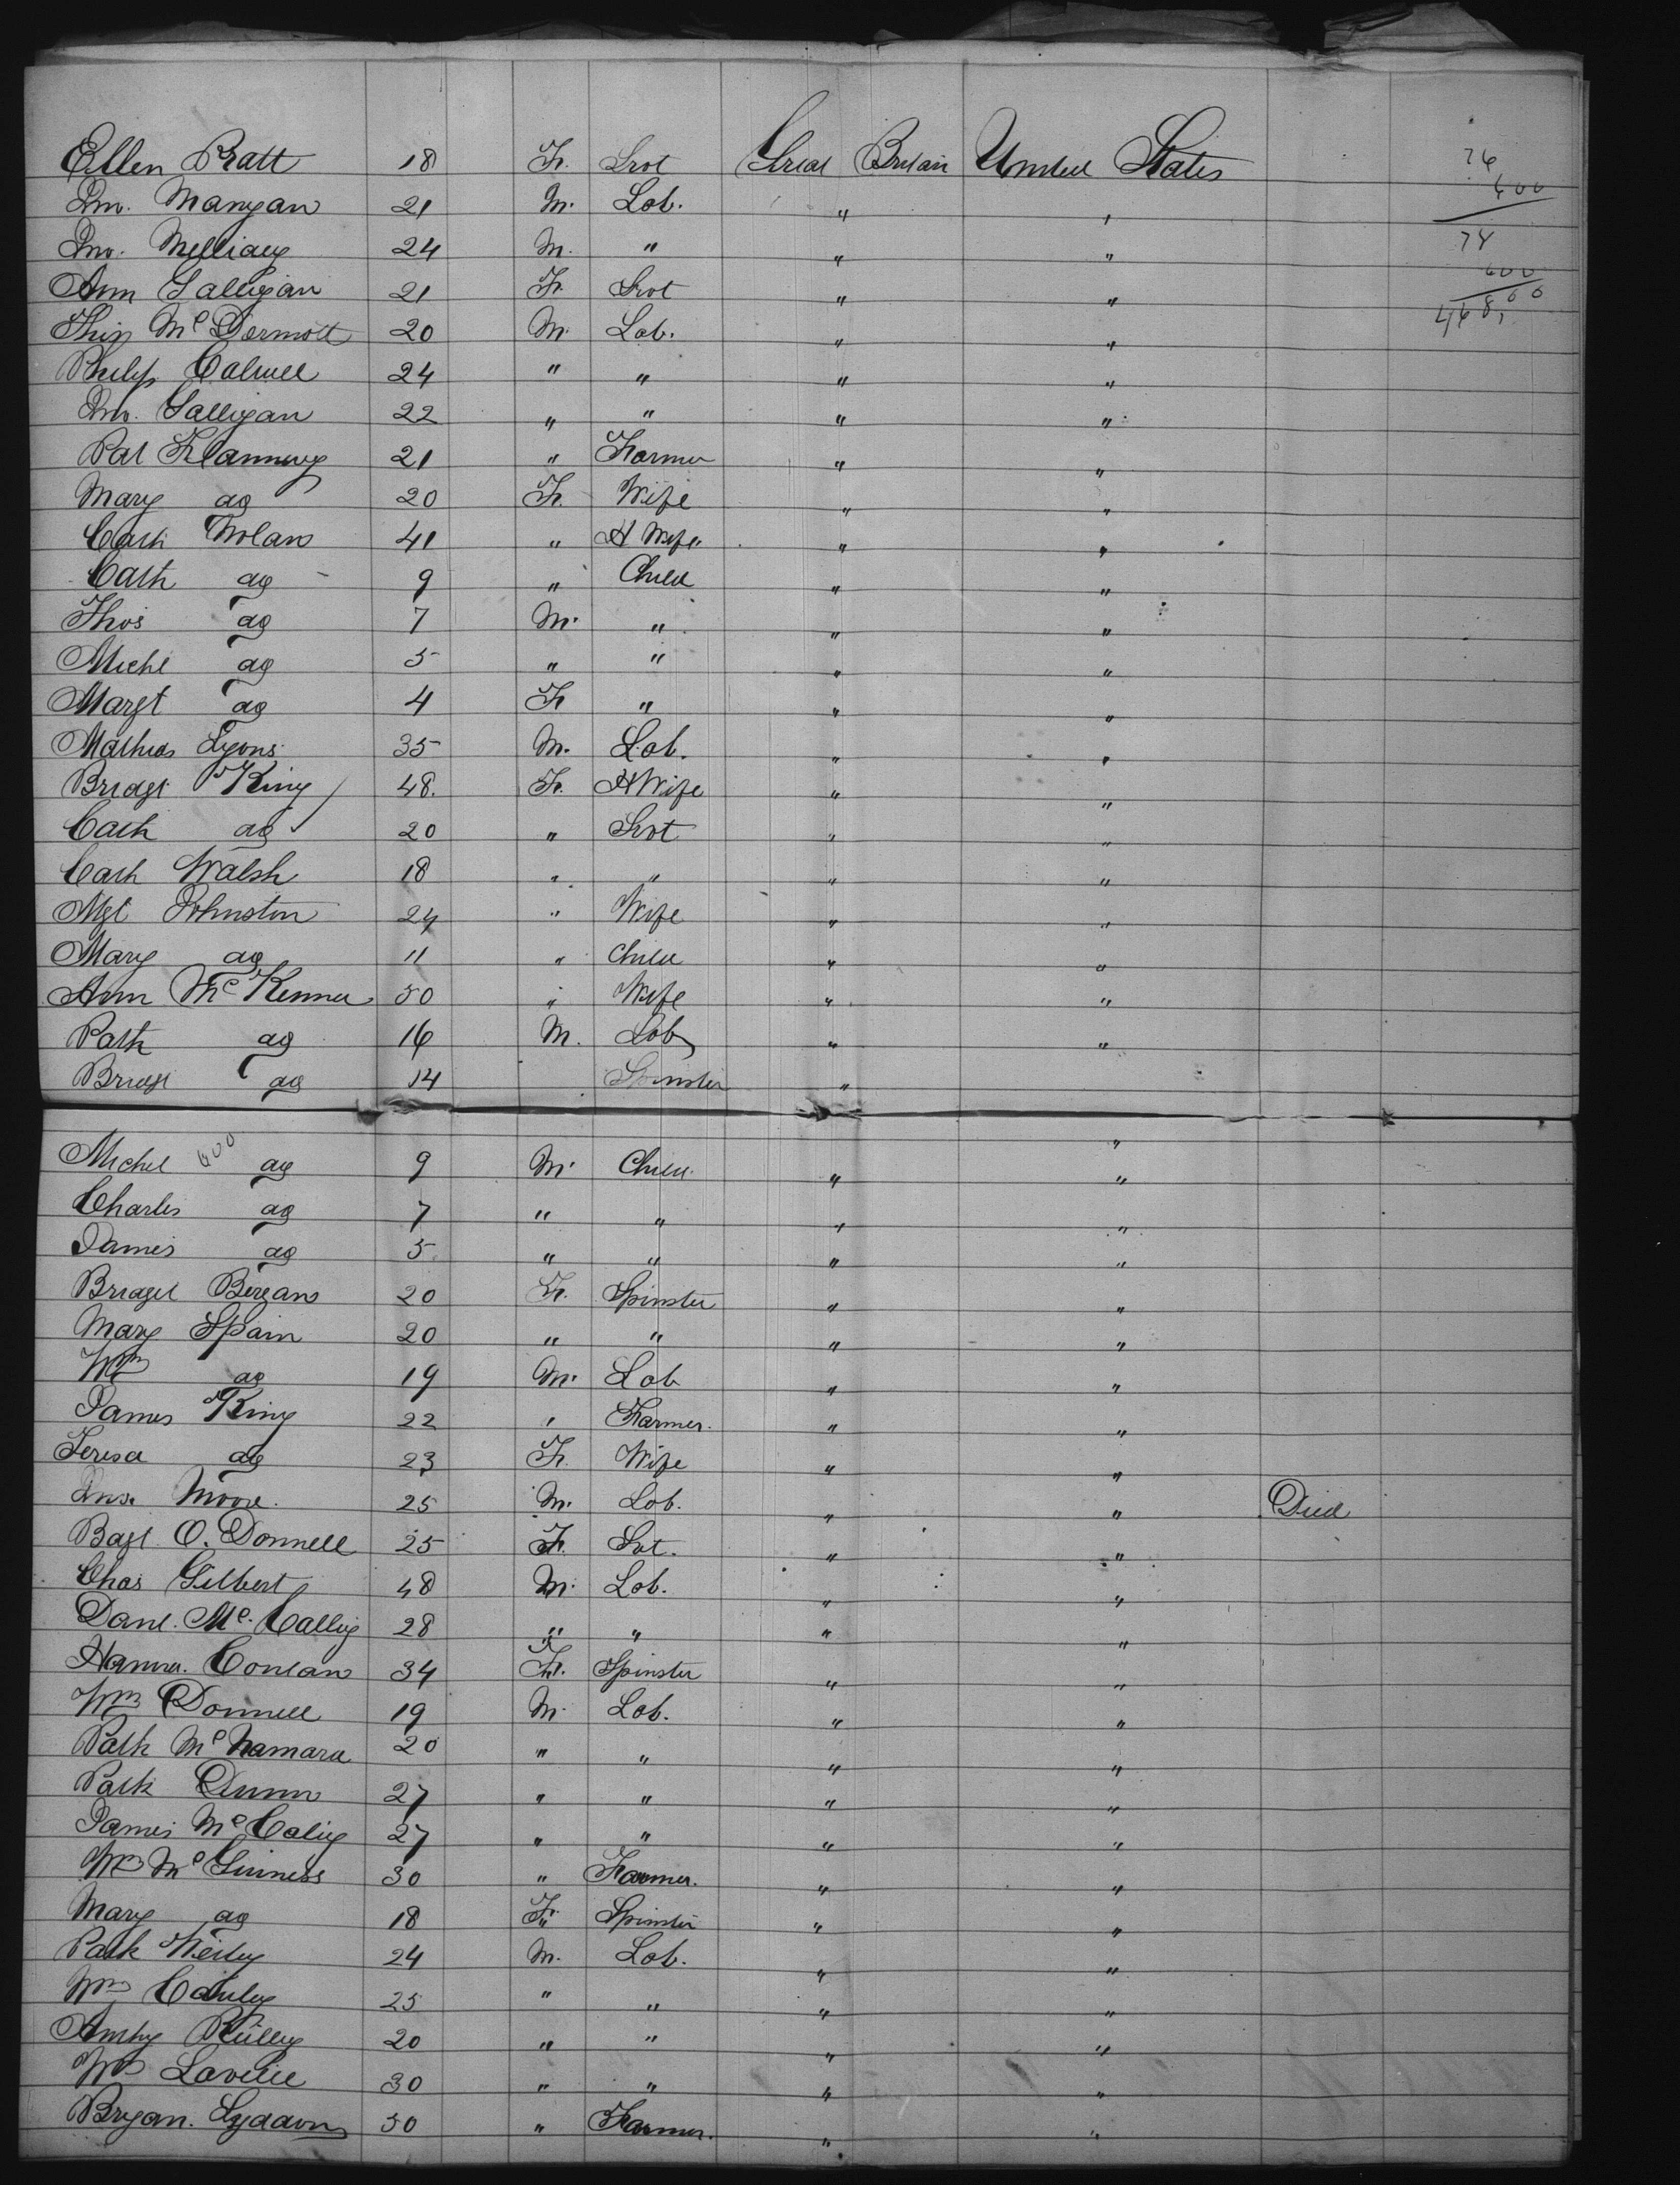 Ellen Pratt 18 F. Srvt Great Britain United States
Jno. Mangan 21 M. Lab. " "
Jno. 24 M. " " "
Ann Galligan 21 F. Srvt " "
McDermott 20 M. Lab. " "
Philip 24 " " " "
Jno. Galligan 22 " " " "
Pat Flannery 21 " Farmer " "
Mary do 20 F. Wife " "
Cath Nolan 41 " H Wife " "
Cath do 9 " Child " "
Thos do 7 M. " " "
Michl do 5 " " " "
Margt do 4 F " " "
Mathias Lyons 35 M. Lab. " "
Bridgt King 48. F. H Wife " "
Cath do 20 " Srvt " "
Cath Walsh 18 " " " "
Mgt Johnston 24 " Wife " "
Mary do 11 " Child " "
Ann McKenna 50 " Wife " "
Patk do 16 M. Lab " "
Bridgt do 14 Spinster " "
Michl do 9 M. Child " "
Charles do 7 " " " "
James do 5 " " " "
Bridget Bergan 20 F. Spinster " "
Mary Spain 20 " " " "
Wm do 19 M. Lab " "
James King 22 " Farmer. " "
Teresa do 23 F. Wife " "
Jno. Moore. 25 M. Lab. " " Died
O. Donnell 25 F. Srvt. " "
Chas Gilbert 48 M. Lab. " "
Danl. Mc. 28 " " " "
Hanna. Conlan 34 F. Spinster " "
Wm Donnell 19 M. Lab. " "
Patk McNamara 20 " " " "
Patk Dunn 27 " " " "
James 27 " " " "
Wm McGuiness 30 " Farmer. " "
Mary do 18 F. Spinster " "
Patk 24 M. Lab. " "
Wm 25 " " " "
Anthy 20 " " " "
Wm 30 " " " "
Bryan. Lyddon 50 " Farmer. " "